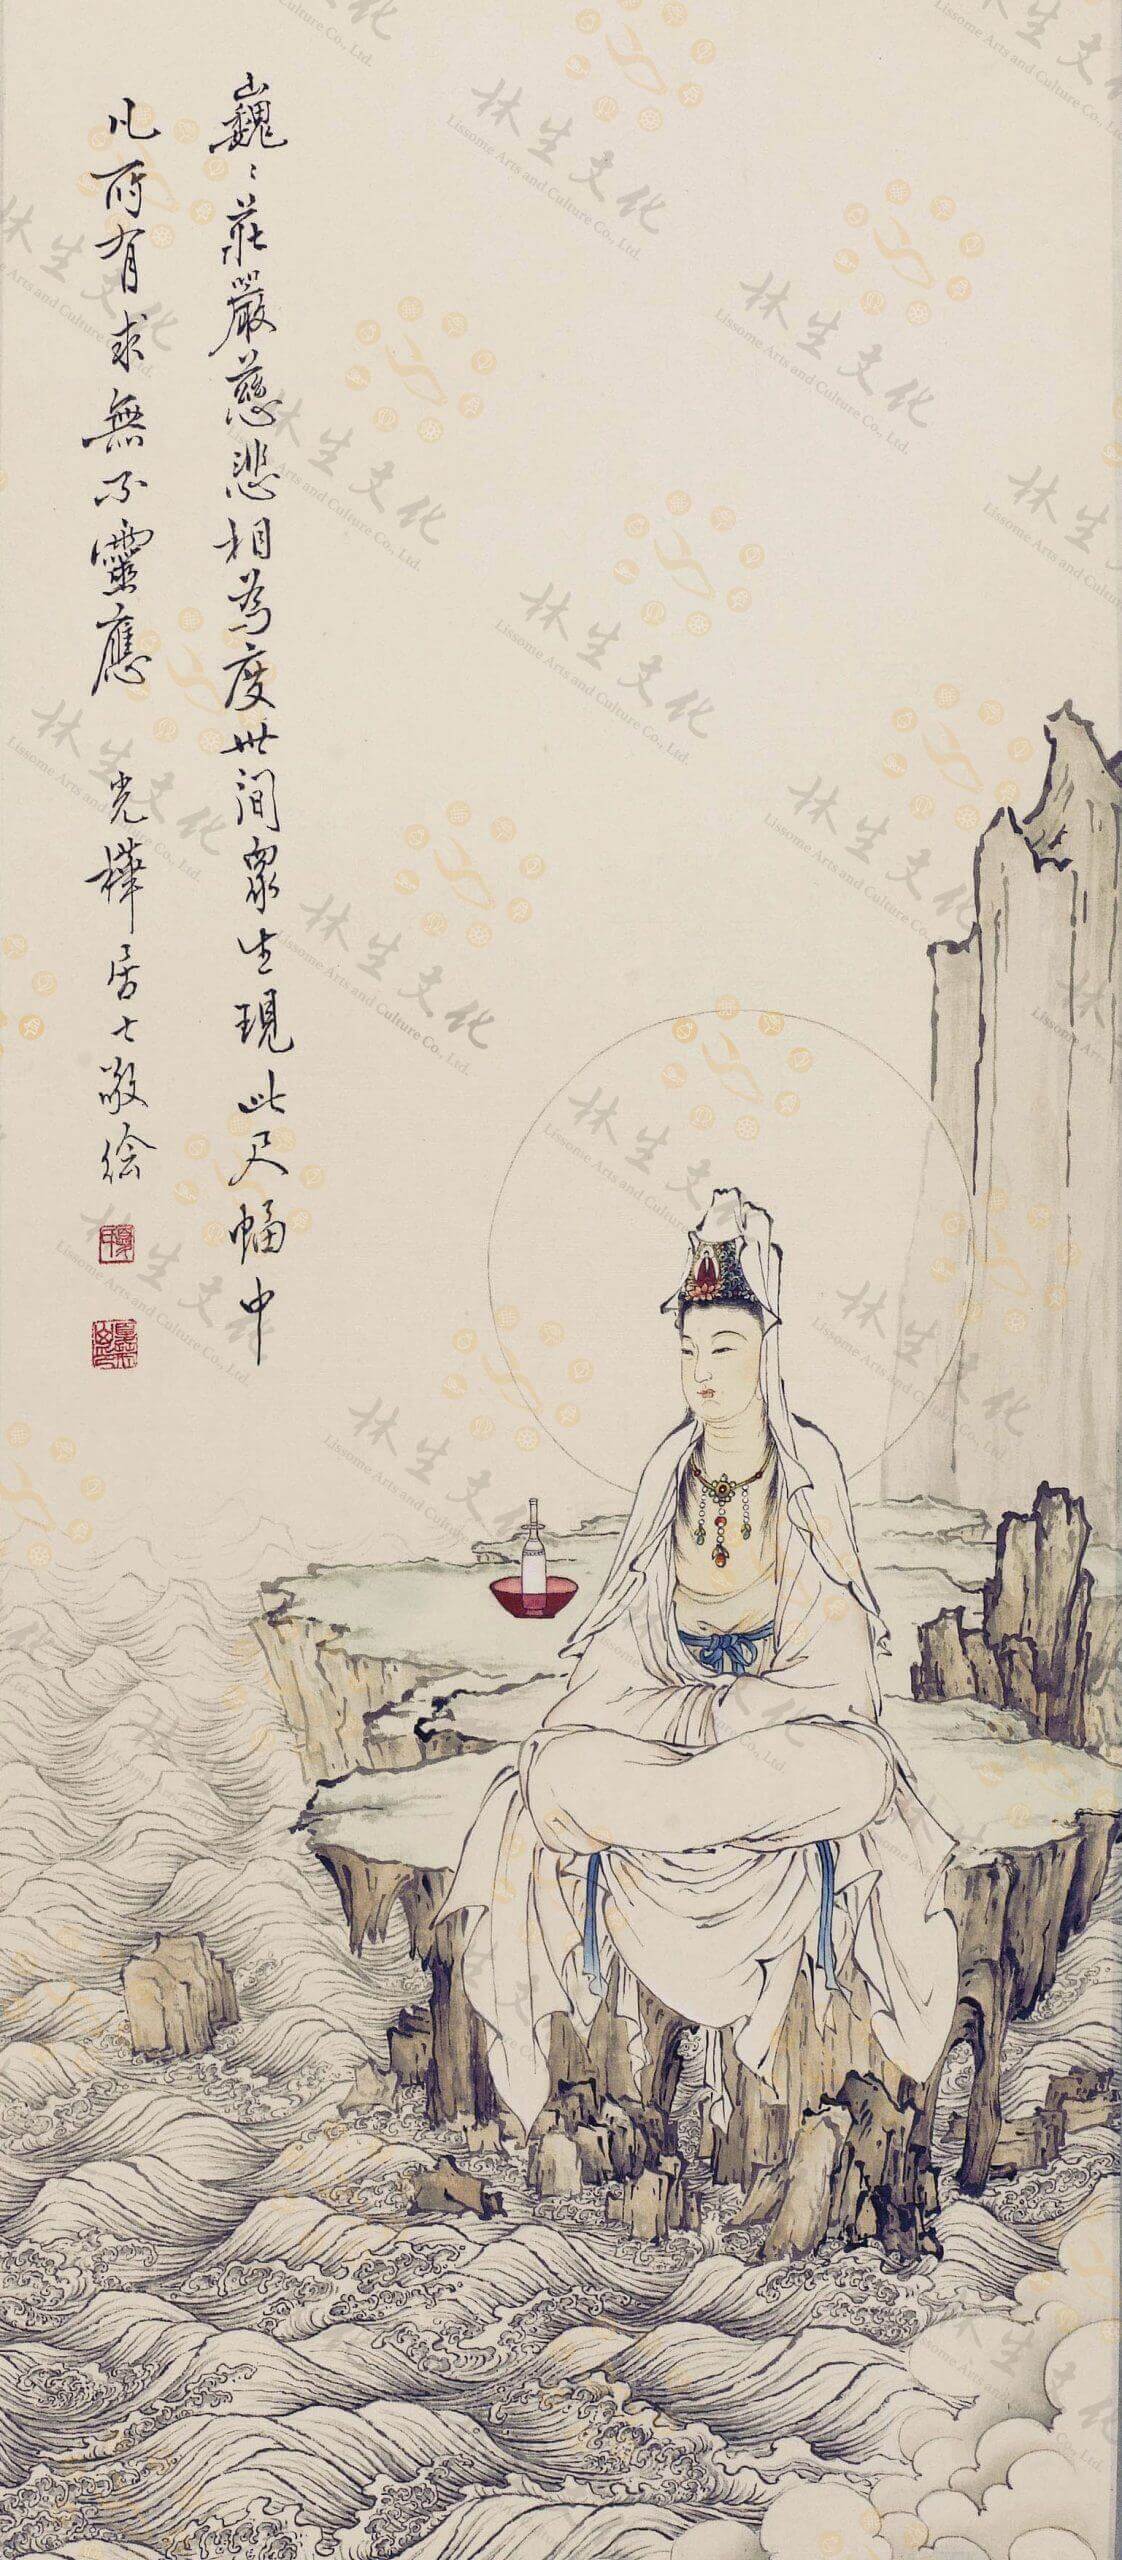 巍〻莊嚴慈悲相為度世間眾生現此尺幅中
凡所有求無不靈應 光樺居士敬绘
林生文化
Lissome Arts and Culture Co., Ltd.